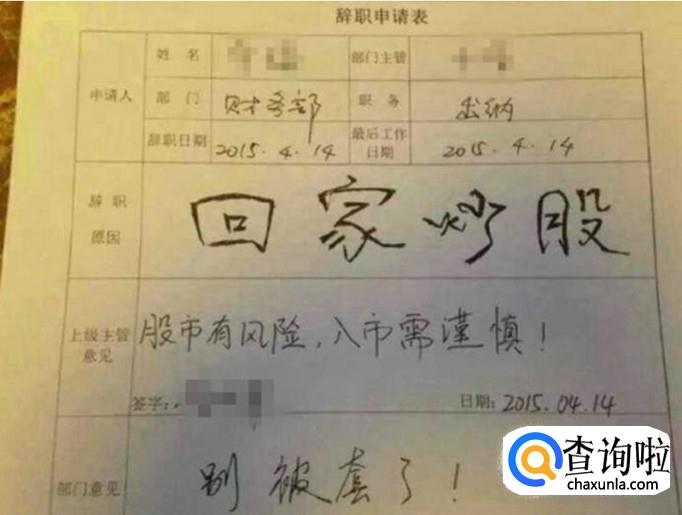 辞职申请表
申请人
姓 名
部门主管
部 门
财务部
职 务
出纳
辞职日期
2015.4.14
最后工作
日期
2015.4.14
辞 职
原因
回家炒股
上级主管
意见
股市有风险,入市需谨慎!
签字:
日期:2015.04.14
部门意见
别被套了!
查询啦
chaxunla.com